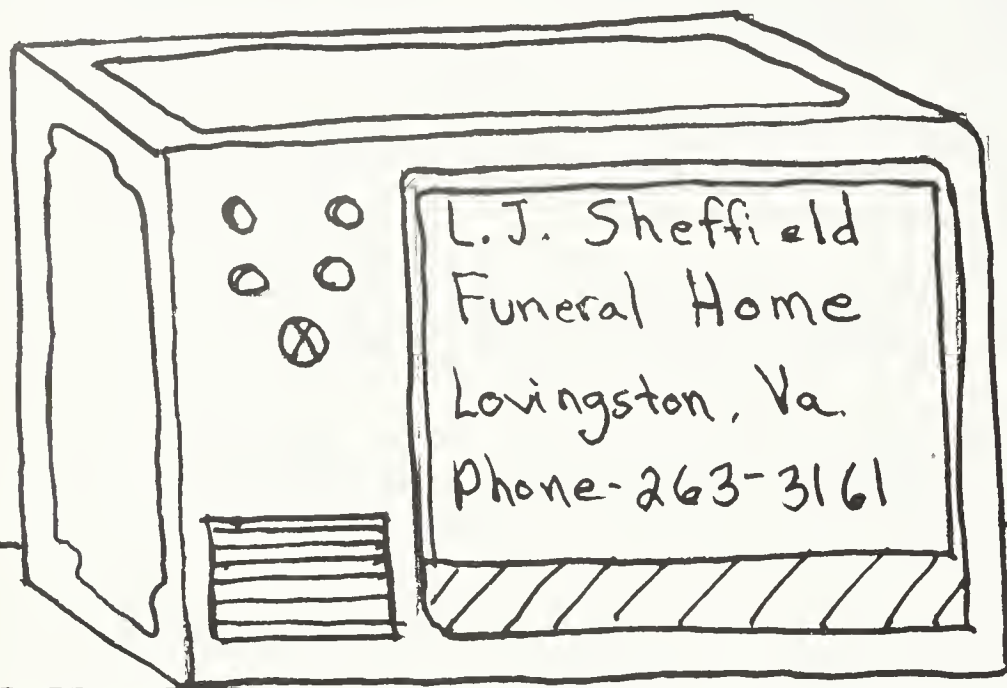 L.J. Sheffield
Funeral Home
Lovingston, Va.
Phone-263-3161